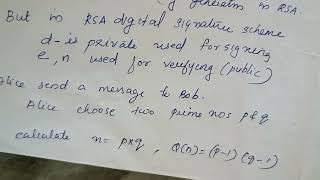 generation in RSA.
But in RSA digital signature scheme
d - is private used for signing
e, n used for verifying (public)
Alice send a message to Bob.
Alice choose two prime nos p & q
calculate n = p×q , Q(n)=(p-1)(q-1)